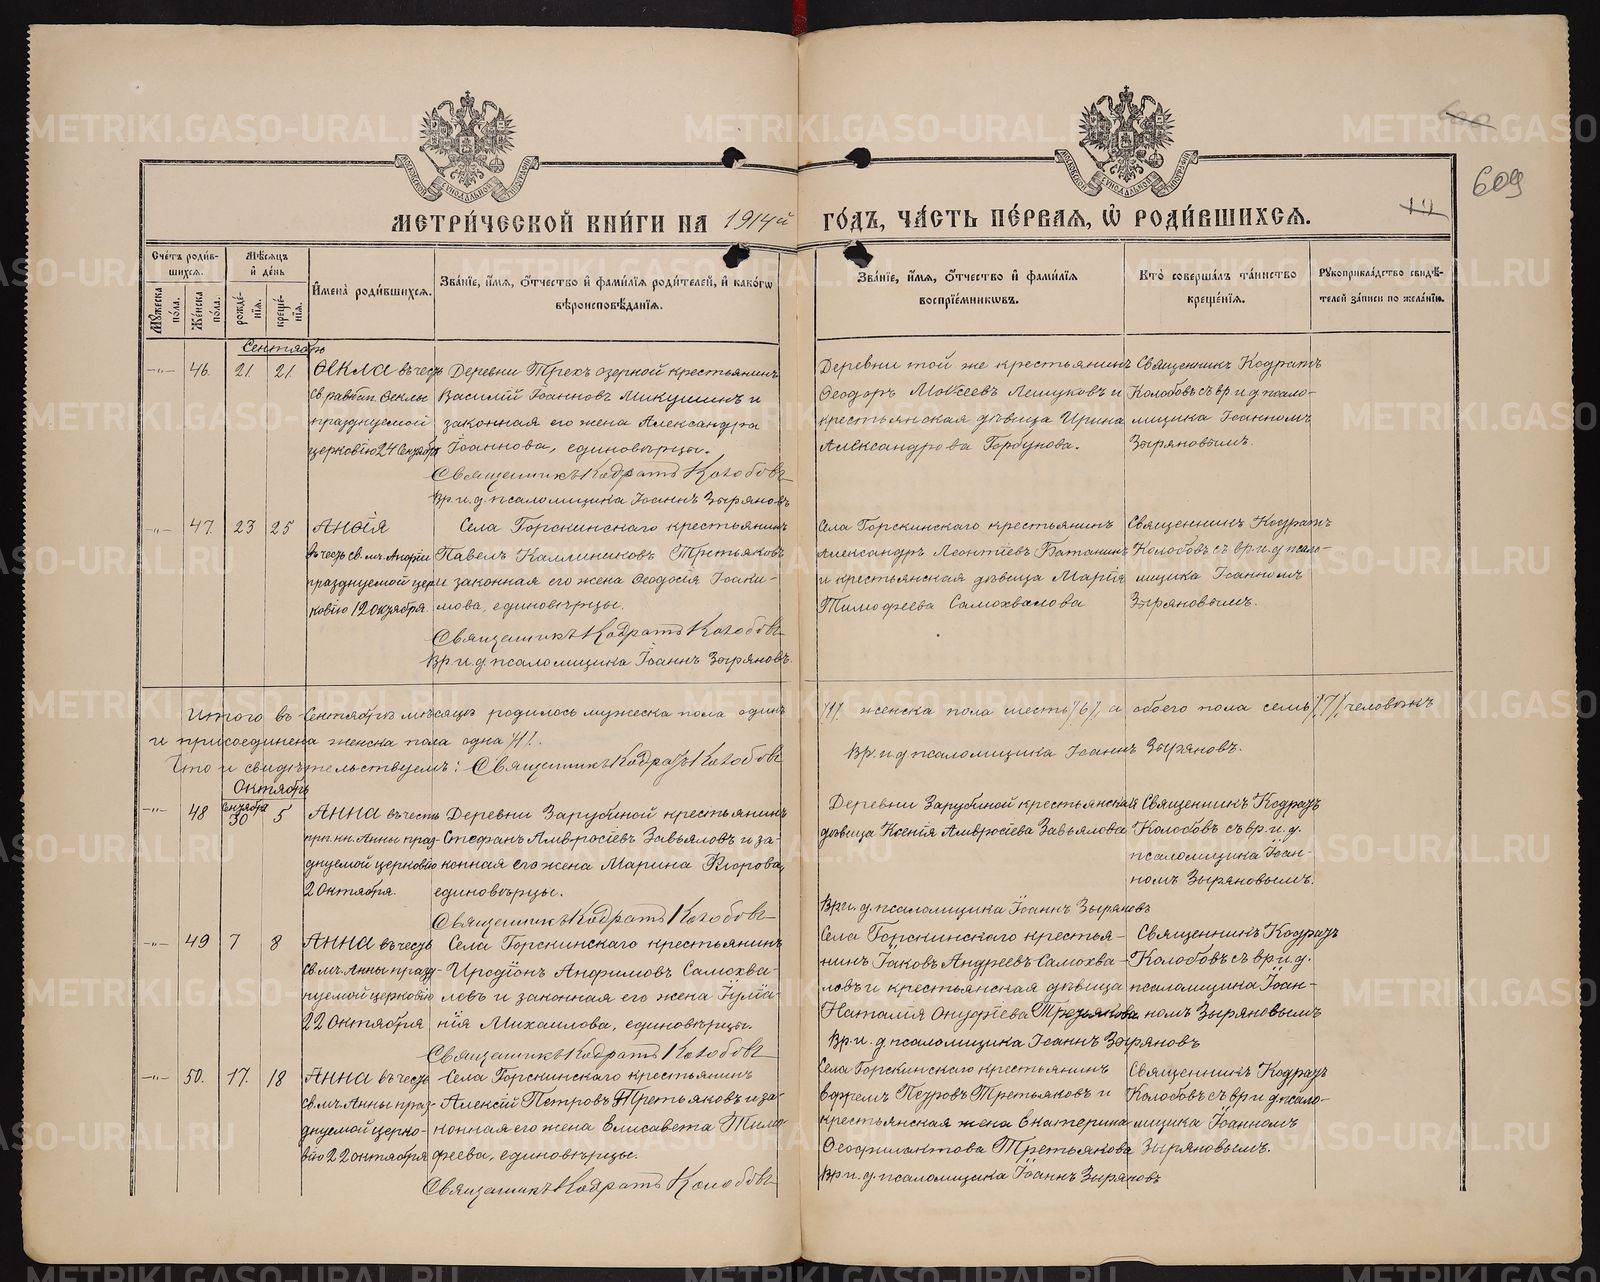 МЕТРИ́ЧЕСКОЙ КНИ́ГИ НА 1914й ГО́ДЪ, ЧА́СТЬ ПЕ́РВАЯ, Ѡ РОДИ́ВШИХСЯ.
609
Сче́тъ роди́вшихся.
Мѣ́сяцъ и́ де́нь
И́мена̀ роди́вшихся.
Зва́нїе, и́мя, о́тчество и́ фами́лїя роди́телей, и́ како́гѡ вѣроисповѣ́данїя.
Зва́нїе, и́мя, о́тчество и́ фами́лїя воспрїе́мниковъ.
Кто̀ соверша́лъ та́инство креще́нїя.
Рꙋкоприкла́дство свидѣ́телей за́писи по жела́нїю.
Мꙋ́жеска по́ла.
Же́нска по́ла.
рожде́нїя.
креще́нїя.
Сентябрь
-"- 46. 21 21 Ѳекла въ честь
св. равноап. Ѳеклы
празднуемой
церковію 24 Сентября
Деревни Трехъ озерной крестьянинъ
Василій Іоанновъ Микушинъ и
законная его жена Александра
Іоаннова, единовѣрцы.
Священникъ Кодратъ Колобовъ
Вр. и. д. псаломщика Іоаннъ Зыряновъ
Деревни той же крестьянинъ
Ѳеодоръ Моѵсеевъ Лешуковъ и
крестьянская дѣвица Ирина
Александрова Горбунова.
Священникъ Кодратъ
Колобовъ съ вр. и д псало-
мщика Іоанномъ
Зыряновымъ.
-"- 47. 23 25 Анѳія
въ честь св. мч. Анѳіи
празднуемой цер-
ковію 12 октября.
Села Горскинскаго крестьянинъ
Павелъ Каллиниковъ Третьяковъ
и законная его жена Ѳеодосія Іоаки-
мова, единовѣрцы.
Священникъ Кодратъ Колобовъ
Вр. и. д. псаломщика Іоаннъ Зыряновъ.
Села Горскинскаго крестьянинъ
Александръ Леонтіевъ Батанинъ
и крестьянская дѣвица Марія
Тимофеева Самохвалова
Священникъ Кодратъ
Колобовъ съ вр. и. д псало-
мщика Іоанномъ
Зыряновымъ.
Итого въ Сентябрѣ мѣсяцѣ родилось мужеска пола одинъ /1/, женска пола шесть /6/, а обоего пола семь /7/, человѣкъ
и присоединена женска пола одна /1/.
Вр. и. д псаломщика Іоаннъ Зыряновъ.
Что и свидѣтельствуемъ: Священникъ Кодратъ Колобовъ
Октябрь
-"- 48 Сентября 30 5 Анна въ честь
прп. кн. Анны праз-
днуемой церковію
2 Октября.
Деревни Зарубиной крестьянинъ
Стефанъ Амвросіевъ Завьяловъ и за-
конная его жена Марина Кирова,
единовѣрцы.
Священникъ Кодратъ Колобовъ
Деревни Зарубиной крестьянская
дѣвица Ксенія Амвросіева Завьялова
Вр. и. д. псаломщика Іоаннъ Зыряновъ
Священникъ Кодратъ
Колобовъ съ вр. и. д.
псаломщика Іоан-
номъ Зыряновымъ.
-"- 49 7 8 Анна въ честь
св. мч. Анны празд-
нуемой церковію
22 Октября
Села Горскинскаго крестьянинъ
Иродіонъ Анфимовъ Самохва-
ловъ и законная его жена Іуліа-
нія Михаилова, единовѣрцы.
Священникъ Кодратъ Колобовъ
Села Горскинскаго крестья-
нинъ Іаковъ Андреевъ Самохва-
ловъ и крестьянская дѣвица
Наталія Онуфріева Третьякова
Вр. и. д. псаломщика Іоаннъ Зыряновъ
Священникъ Кодратъ
Колобовъ съ вр. и. д.
псаломщика Іоан-
номъ Зыряновымъ
-"- 50. 17. 18 Анна въ честь
св. мч. Анны праз-
днуемой церко-
вію 22 октября
Села Горскинскаго крестьянинъ
Алексій Петровъ Третьяковъ и за-
конная его жена Елисавета Тимо-
феева, единовѣрцы.
Священникъ Кодратъ Колобовъ
Села Горскинскаго крестьянинъ
Ефремъ Петровъ Третьяковъ и
крестьянская жена Екатерина
Ѳеофилактова Третьякова
Вр. и. д. псаломщика Іоаннъ Зыряновъ
Священникъ Кодратъ
Колобовъ съ вр и д псало-
мщика Іоанномъ
Зыряновымъ.
METRIKI.GASO-URAL.RU